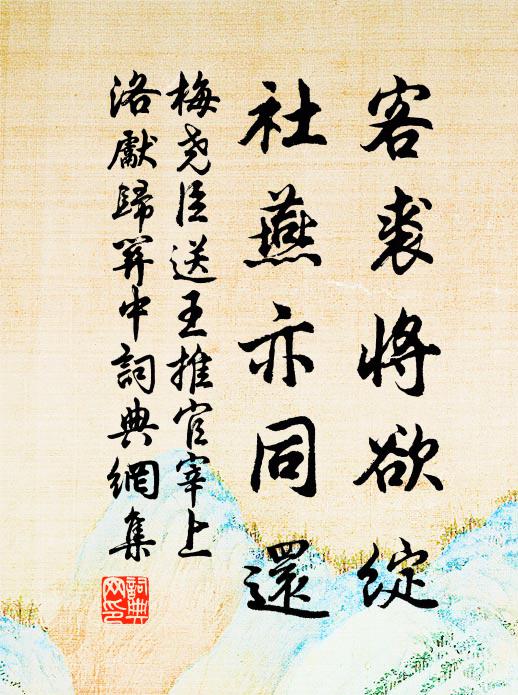 客裘將欲綻
社燕亦同還
梅堯臣送王推官宰上
洛獻歸關中詞典網集
詞典網印